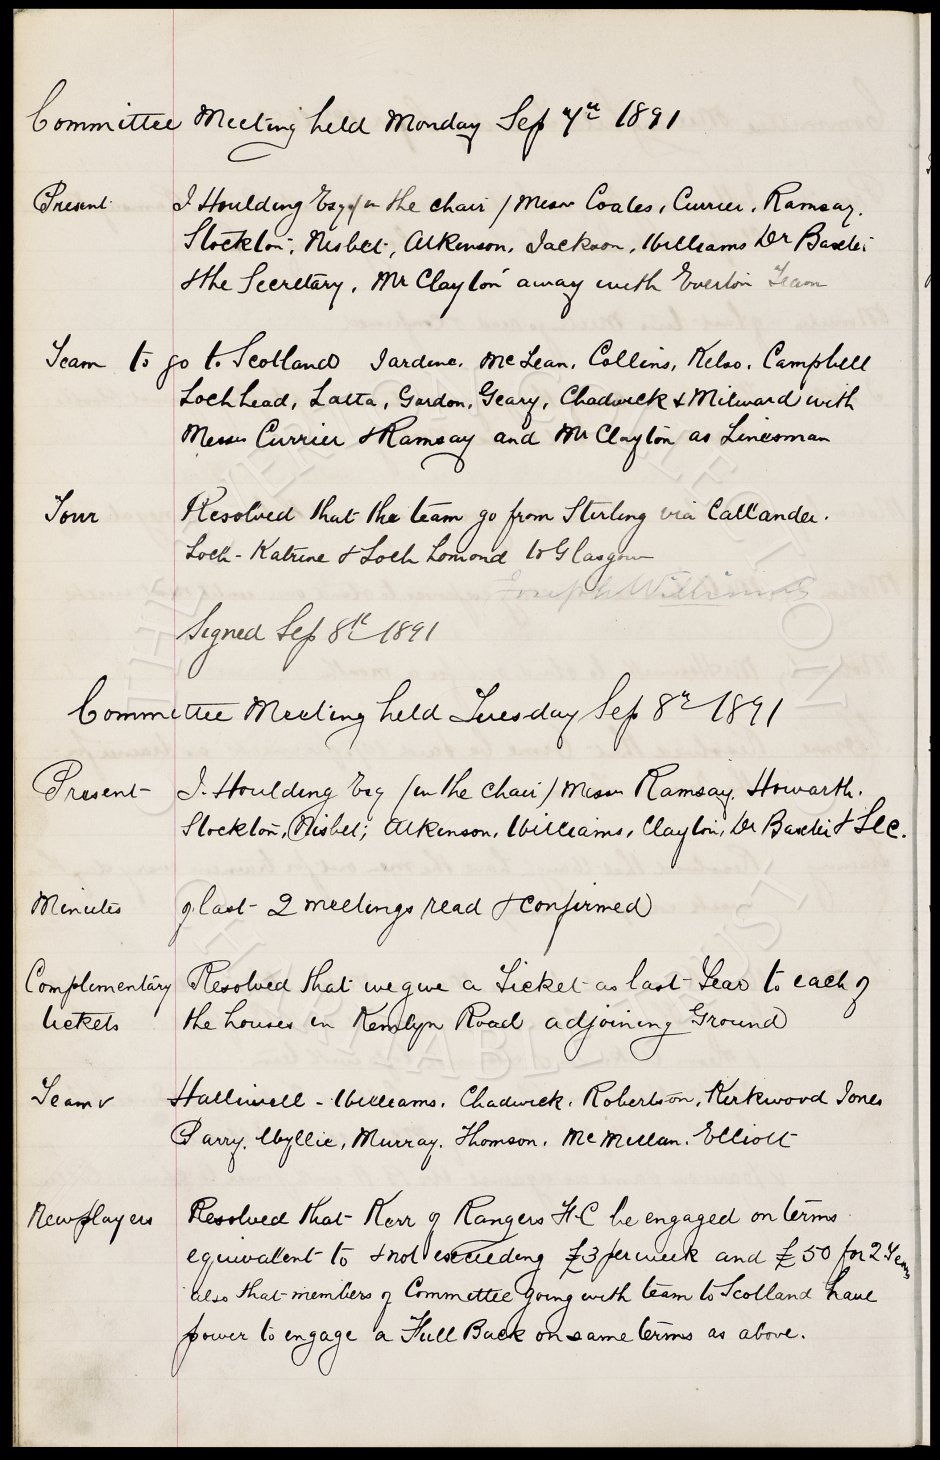 Committee Meeting held Monday Sep 7th 1891
Present J Houlding Esq (in the chair) Messrs Coates, Currier, Ramsay,
Stockton, Nisbet, Atkinson, Jackson, Williams Dr Baxter
& the Secretary, Mr Clayton away with Everton Team
Team to go to Scotland Jardine, McLean, Collins, Kelso, Campbell
Lochhead, Latta, Gordon, Geary, Chadwick & Milward with
Messrs Currier & Ramsay and Mr Clayton as Linesman
Tour Resolved that the team go from Stirling via Callander.
Loch-Katrine & Loch Lomond to Glasgow
Joseph Williams
Signed Sep 8th 1891
Committee Meeting held Tuesday Sep 8th 1891
Present J. Houlding Esq (in the chair) Messrs Ramsay, Howarth,
Stockton, Nisbet, Atkinson, Williams, Clayton, Dr Baxter & Sec.
Minutes of last 2 meetings read & confirmed
Complimentary Resolved that we give a Ticket as last Year to each of
tickets the houses in Kemlyn Road adjoining Ground
Team v Halliwell - Williams, Chadwick, Robertson, Kirkwood Jones
Parry, Wyllie, Murray, Thomson, McMillan, Elliott
New players Resolved that Kerr of Rangers F.C be engaged on terms
equivalent to & not exceeding £3 per week and £50 for 2 Years
also that members of Committee going with team to Scotland have
power to engage a Full Back on same terms as above.
THE EVERTON COLLECTION
CHARITABLE TRUST